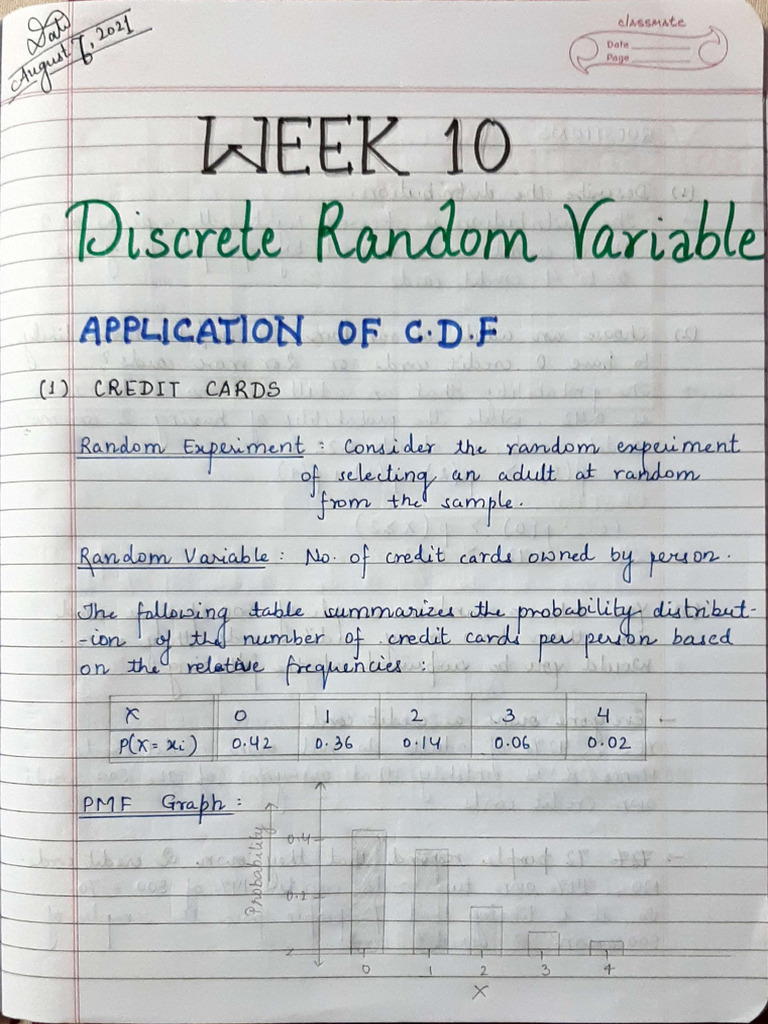 Date
August 6, 2021
classmate
Date
Page
WEEK 10
Discrete Random Variable
APPLICATION OF C.D.F
(1) CREDIT CARDS
Random Experiment : Consider the random experiment
of selecting an adult at random
from the sample.
Random Variable : No. of credit cards owned by person.
The following table summarizes the probability distribut-
-ion of the number of credit cards per person based
on the relative frequencies :
X 0 1 2 3 4
P(X = xi) 0.42 0.36 0.14 0.06 0.02
PMF Graph :
Probability
0.4
0.2
0 1 2 3 4
X